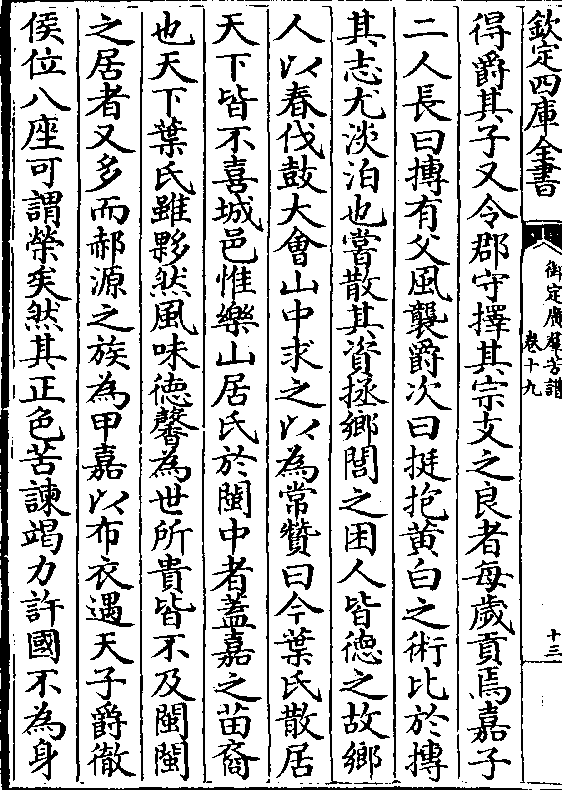 欽定四庫全書
御定廣羣芳譜
卷十九
十三
得爵其子又令郡守擇其宗支之良者每歲貢焉嘉子
二人長曰摶有父風襲爵次曰挺抱黄白之術比於摶
其志尤淡泊也嘗散其資拯鄉閭之困人皆徳之故鄉
人以春伐鼓大會山中求之以為常贊曰今葉氏散居
天下皆不喜城邑惟樂山居氏於閩中者蓋嘉之苗裔
也天下葉氏雖夥然風味徳馨為世所貴皆不及閩閩
之居者又多而郝源之族為甲嘉以布衣遇天子爵徹
侯位八座可謂榮矣然其正色苦諫竭力許國不為身